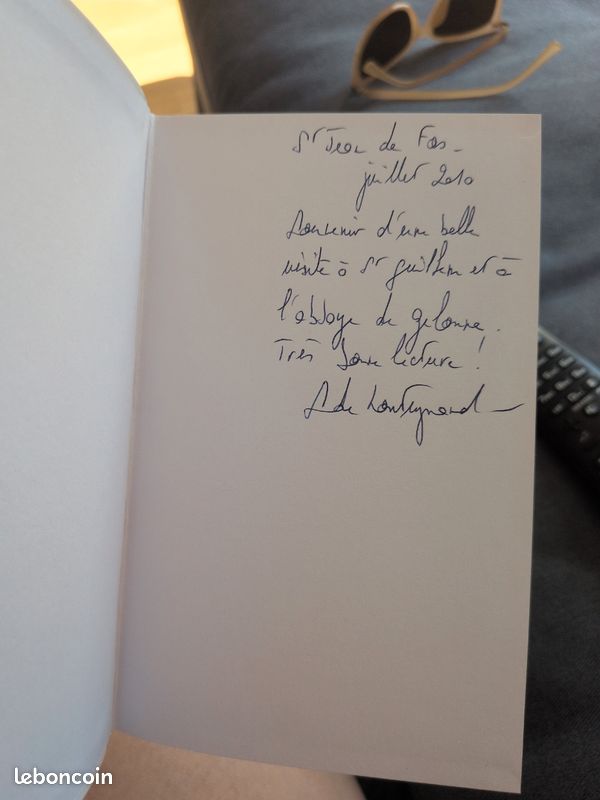 St Jean de Fos -
juillet 2010
Souvenir d'une belle
visite à St Guilhem et à
l'abbaye de Gelonne.
Très bonne lecture !
S de
leboncoin